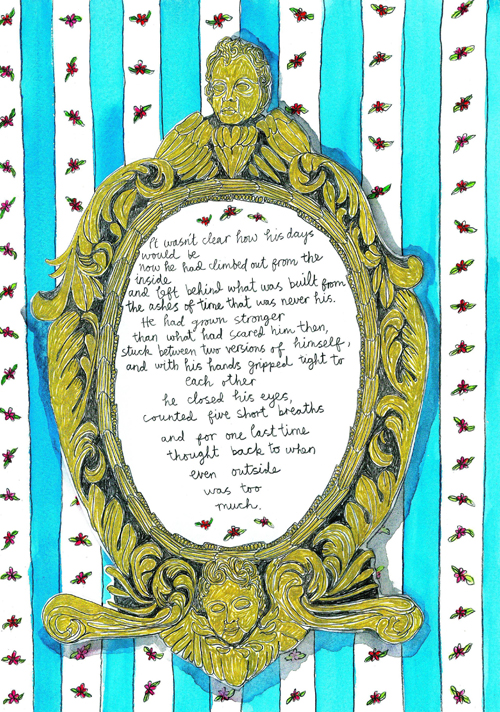 It wasn't clear how his days
would be
now he had climbed out from the
inside
and left behind what was built from
the ashes of time that was never his.
He had grown stronger
than what had scared him then,
stuck between two versions of himself,
and with his hands gripped tight to
each other
he closed his eyes,
counted five short breaths
and for one last time
thought back to when
even outside
was too
much.